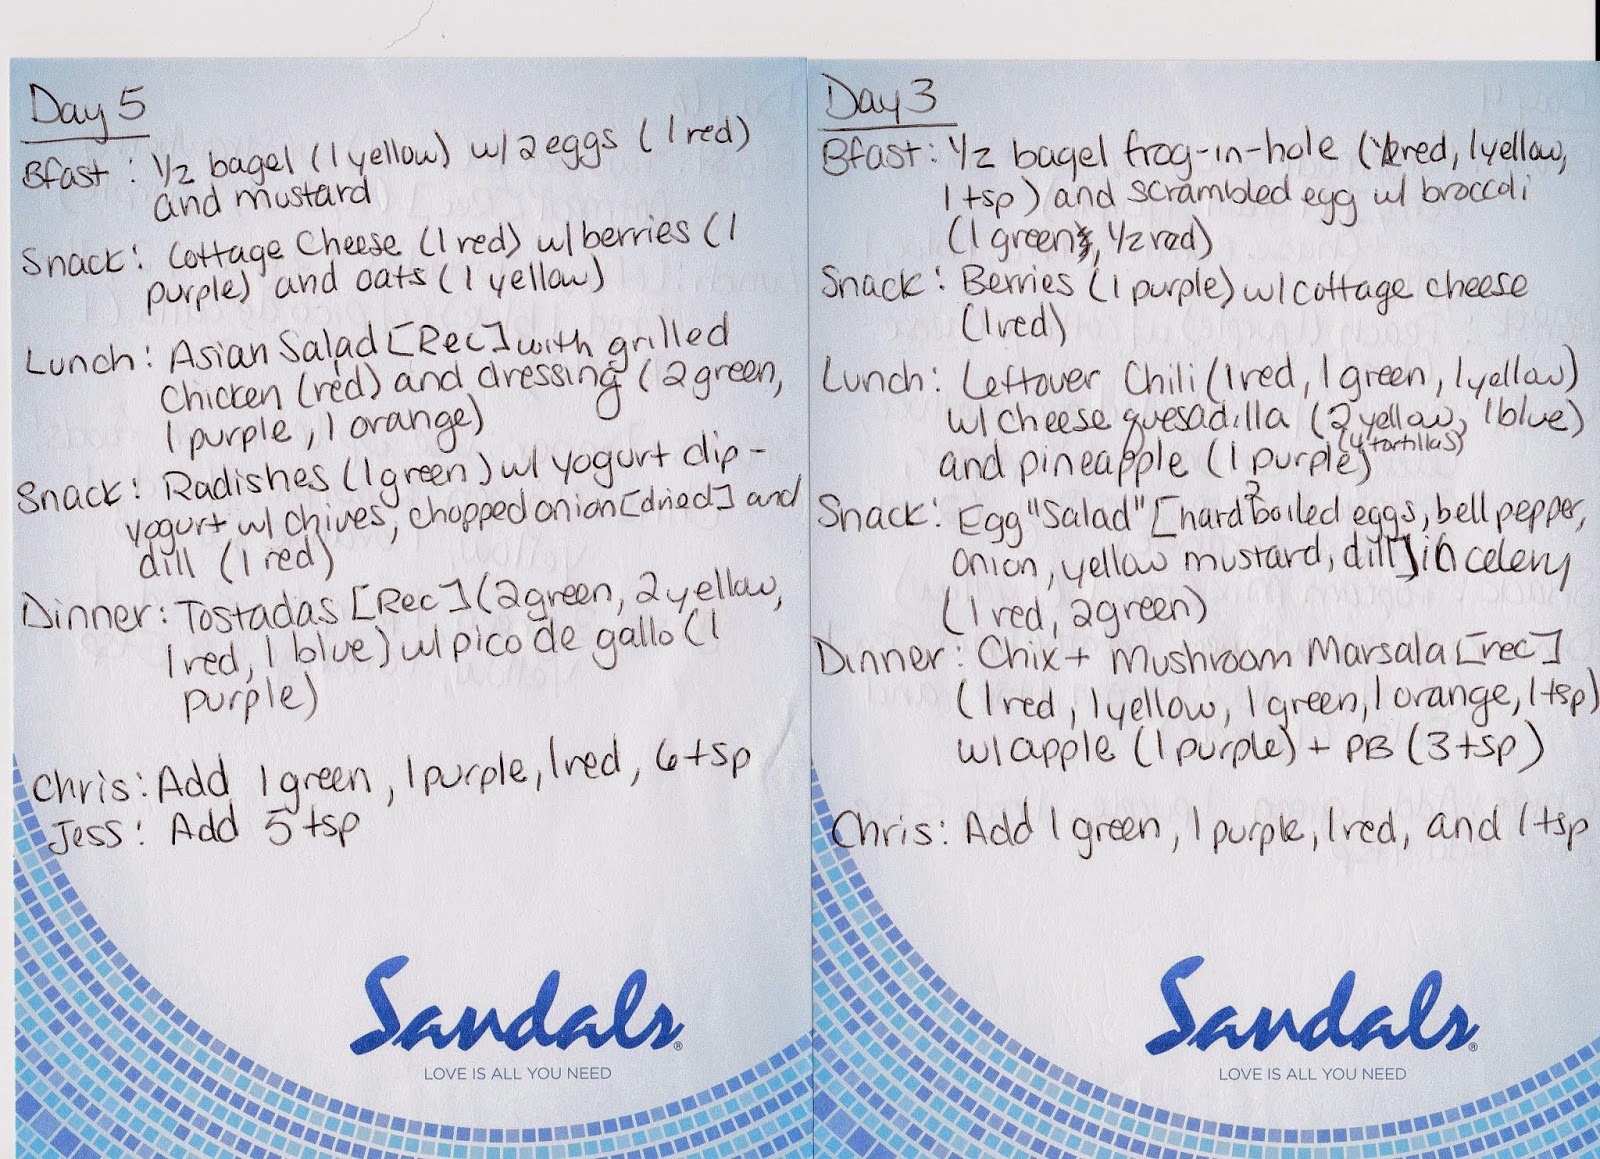 Day 5
Bfast: 1/2 bagel (1 yellow) w/ 2 eggs (1 red)
and mustard
Snack: Cottage Cheese (1 red) w/ berries (1
purple) and oats (1 yellow)
Lunch: Asian Salad [Rec] with grilled
chicken (red) and dressing (2 green,
1 purple, 1 orange)
Snack: Radishes (1 green) w/ yogurt dip -
yogurt w/ chives, chopped onion [dried] and
dill (1 red)
Dinner: Tostadas [Rec] (2 green, 2 yellow,
1 red, 1 blue) w/ pico de gallo (1
purple)
Chris: Add 1 green, 1 purple, 1 red, 6 tsp
Jess: Add 5 tsp
Sandals®
LOVE IS ALL YOU NEED
Day 3
Bfast: 1/2 bagel frog-in-hole (1/2 red, 1 yellow,
1 tsp) and scrambled egg w/ broccoli
(1 green, 1/2 red)
Snack: Berries (1 purple) w/ cottage cheese
(1 red)
Lunch: Leftover Chili (1 red, 1 green, 1 yellow)
w/ cheese quesadilla (2 yellow, 1 blue)
(4 tortillas)
and pineapple (1 purple)
Snack: Egg "Salad" [2 hard boiled eggs, bell pepper,
onion, yellow mustard, dill] in celery
(1 red, 2 green)
Dinner: Chix + Mushroom Marsala [rec]
(1 red, 1 yellow, 1 green, 1 orange, 1 tsp)
w/ apple (1 purple) + PB (3 tsp)
Chris: Add 1 green, 1 purple, 1 red, and 1 tsp
Sandals®
LOVE IS ALL YOU NEED